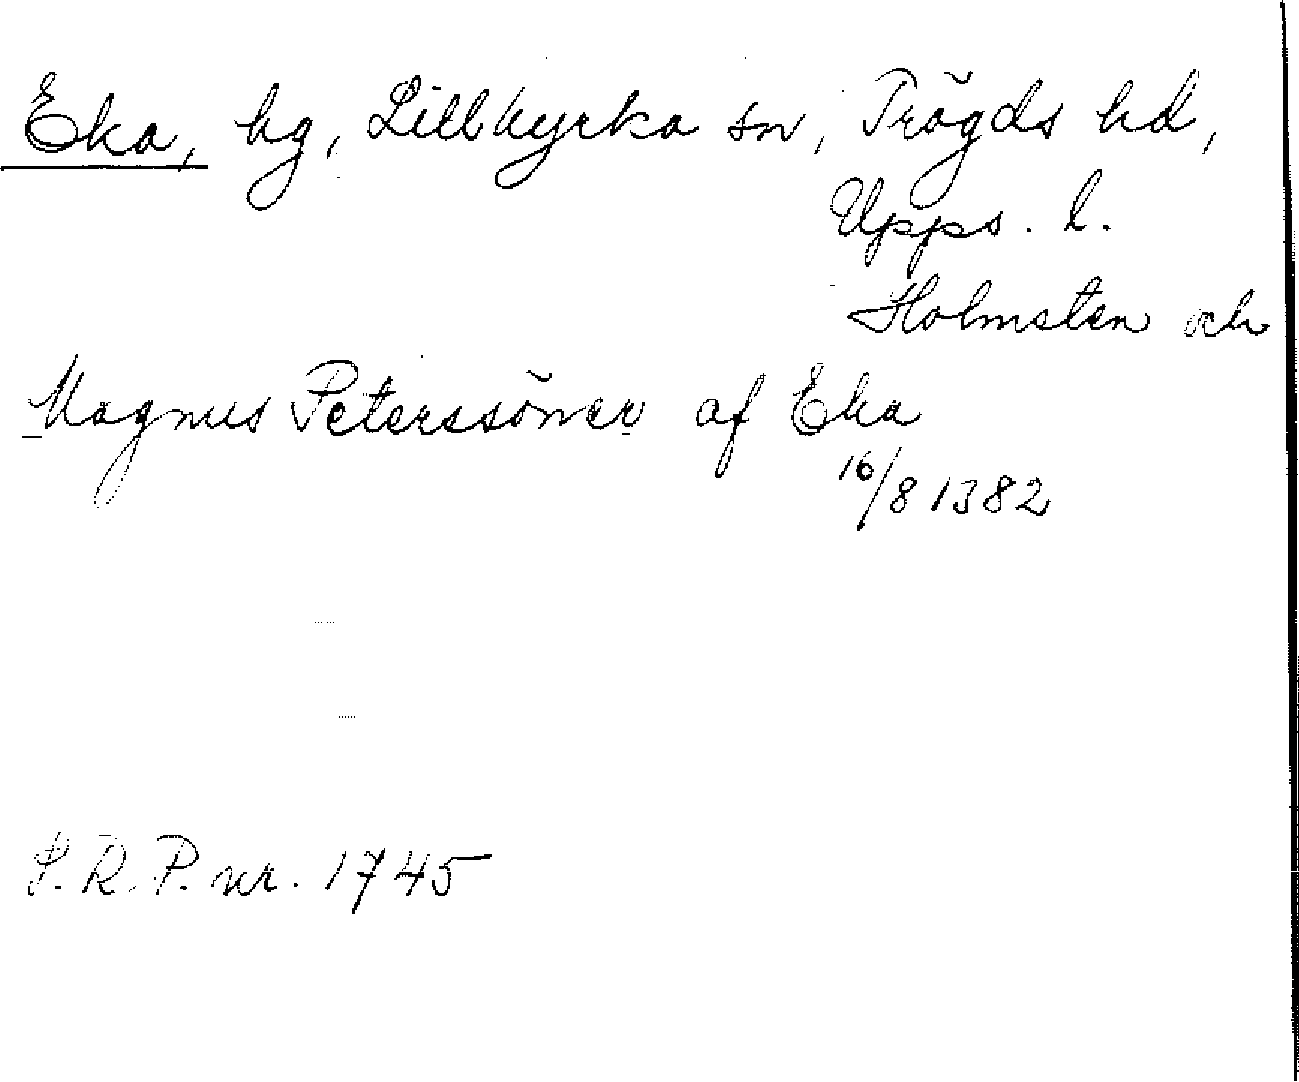 Eka, hg, Lillkyrka sn, Trögds hd,
Upps. l.
Holmsten och
Magnus Peterssöner af Eka
16/8 1382
S. R. P. nr. 1745